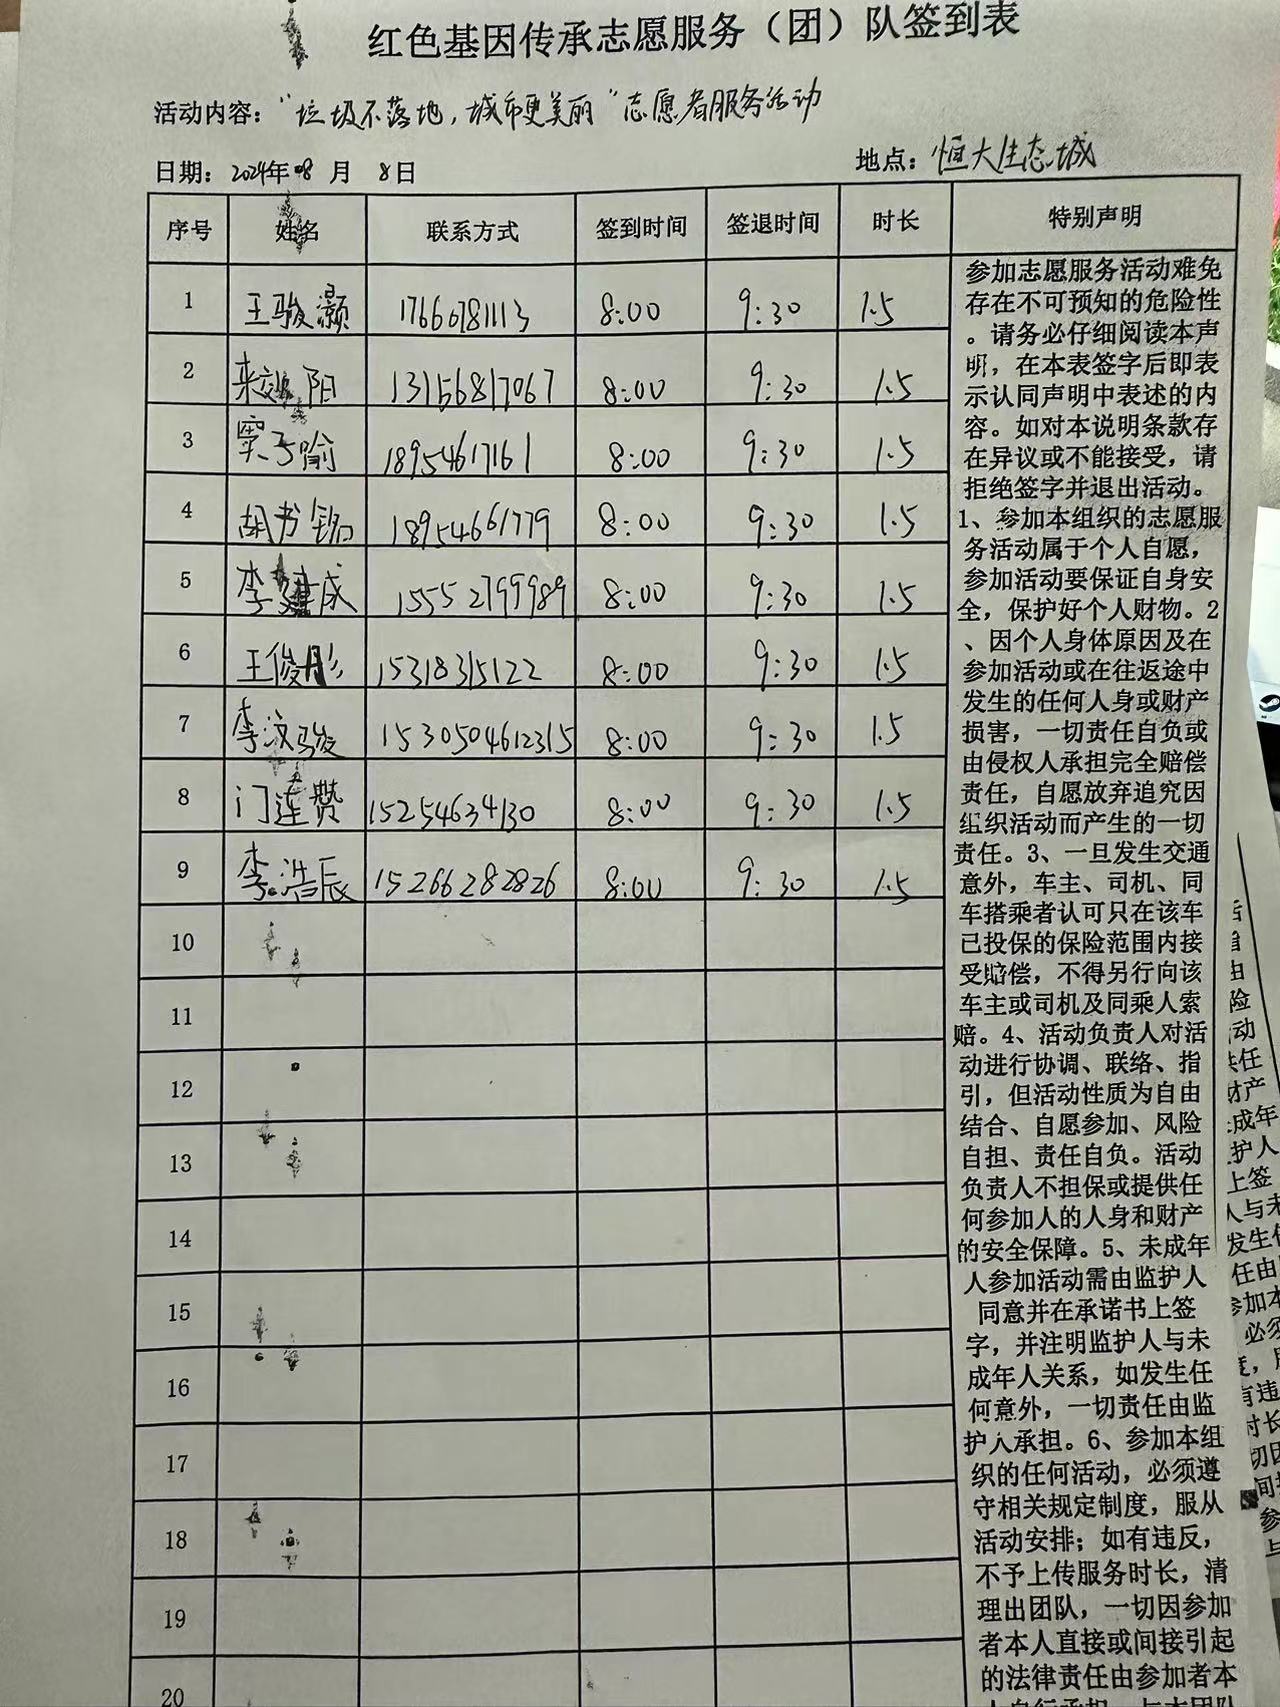 红色基因传承志愿服务（团）队签到表
活动内容：“垃圾不落地，城市更美丽”志愿者服务活动
日期：2024年08月 8日 地点：恒大生态城
序号 姓名 联系方式 签到时间 签退时间 时长 特别声明
1 王骏灏 17660781113 8:00 9:30 1.5
2 阳 13156817067 8:00 9:30 1.5
3 窦子喻 18954617161 8:00 9:30 1.5
4 胡书铭 18954661779 8:00 9:30 1.5
5 李建成 15552799989 8:00 9:30 1.5
6 王俊彤 15318315122 8:00 9:30 1.5
7 李汶骏 1530504612315 8:00 9:30 1.5
8 门连赞 15254634130 8:00 9:30 1.5
9 李浩辰 15266282826 8:00 9:30 1.5
10
11
12
13
14
15
16
17
18
19
20
参加志愿服务活动难免
存在不可预知的危险性
。请务必仔细阅读本声
明，在本表签字后即表
示认同声明中表述的内
容。如对本说明条款存
在异议或不能接受，请
拒绝签字并退出活动。
1、参加本组织的志愿服
务活动属于个人自愿，
参加活动要保证自身安
全，保护好个人财物。2
、因个人身体原因及在
参加活动或在往返途中
发生的任何人身或财产
损害，一切责任自负或
由侵权人承担完全赔偿
责任，自愿放弃追究因
组织活动而产生的一切
责任。3、一旦发生交通
意外，车主、司机、同
车搭乘者认可只在该车
已投保的保险范围内接
受赔偿，不得另行向该
车主或司机及同乘人索
赔。4、活动负责人对活
动进行协调、联络、指
引，但活动性质为自由
结合、自愿参加、风险
自担、责任自负。活动
负责人不担保或提供任
何参加人的人身和财产
的安全保障。5、未成年
人参加活动需由监护人
同意并在承诺书上签
字，并注明监护人与未
成年人关系，如发生任
何意外，一切责任由监
护人承担。6、参加本组
织的任何活动，必须遵
守相关规定制度，服从
活动安排；如有违反，
不予上传服务时长，清
理出团队，一切因参加
者本人直接或间接引起
的法律责任由参加者本